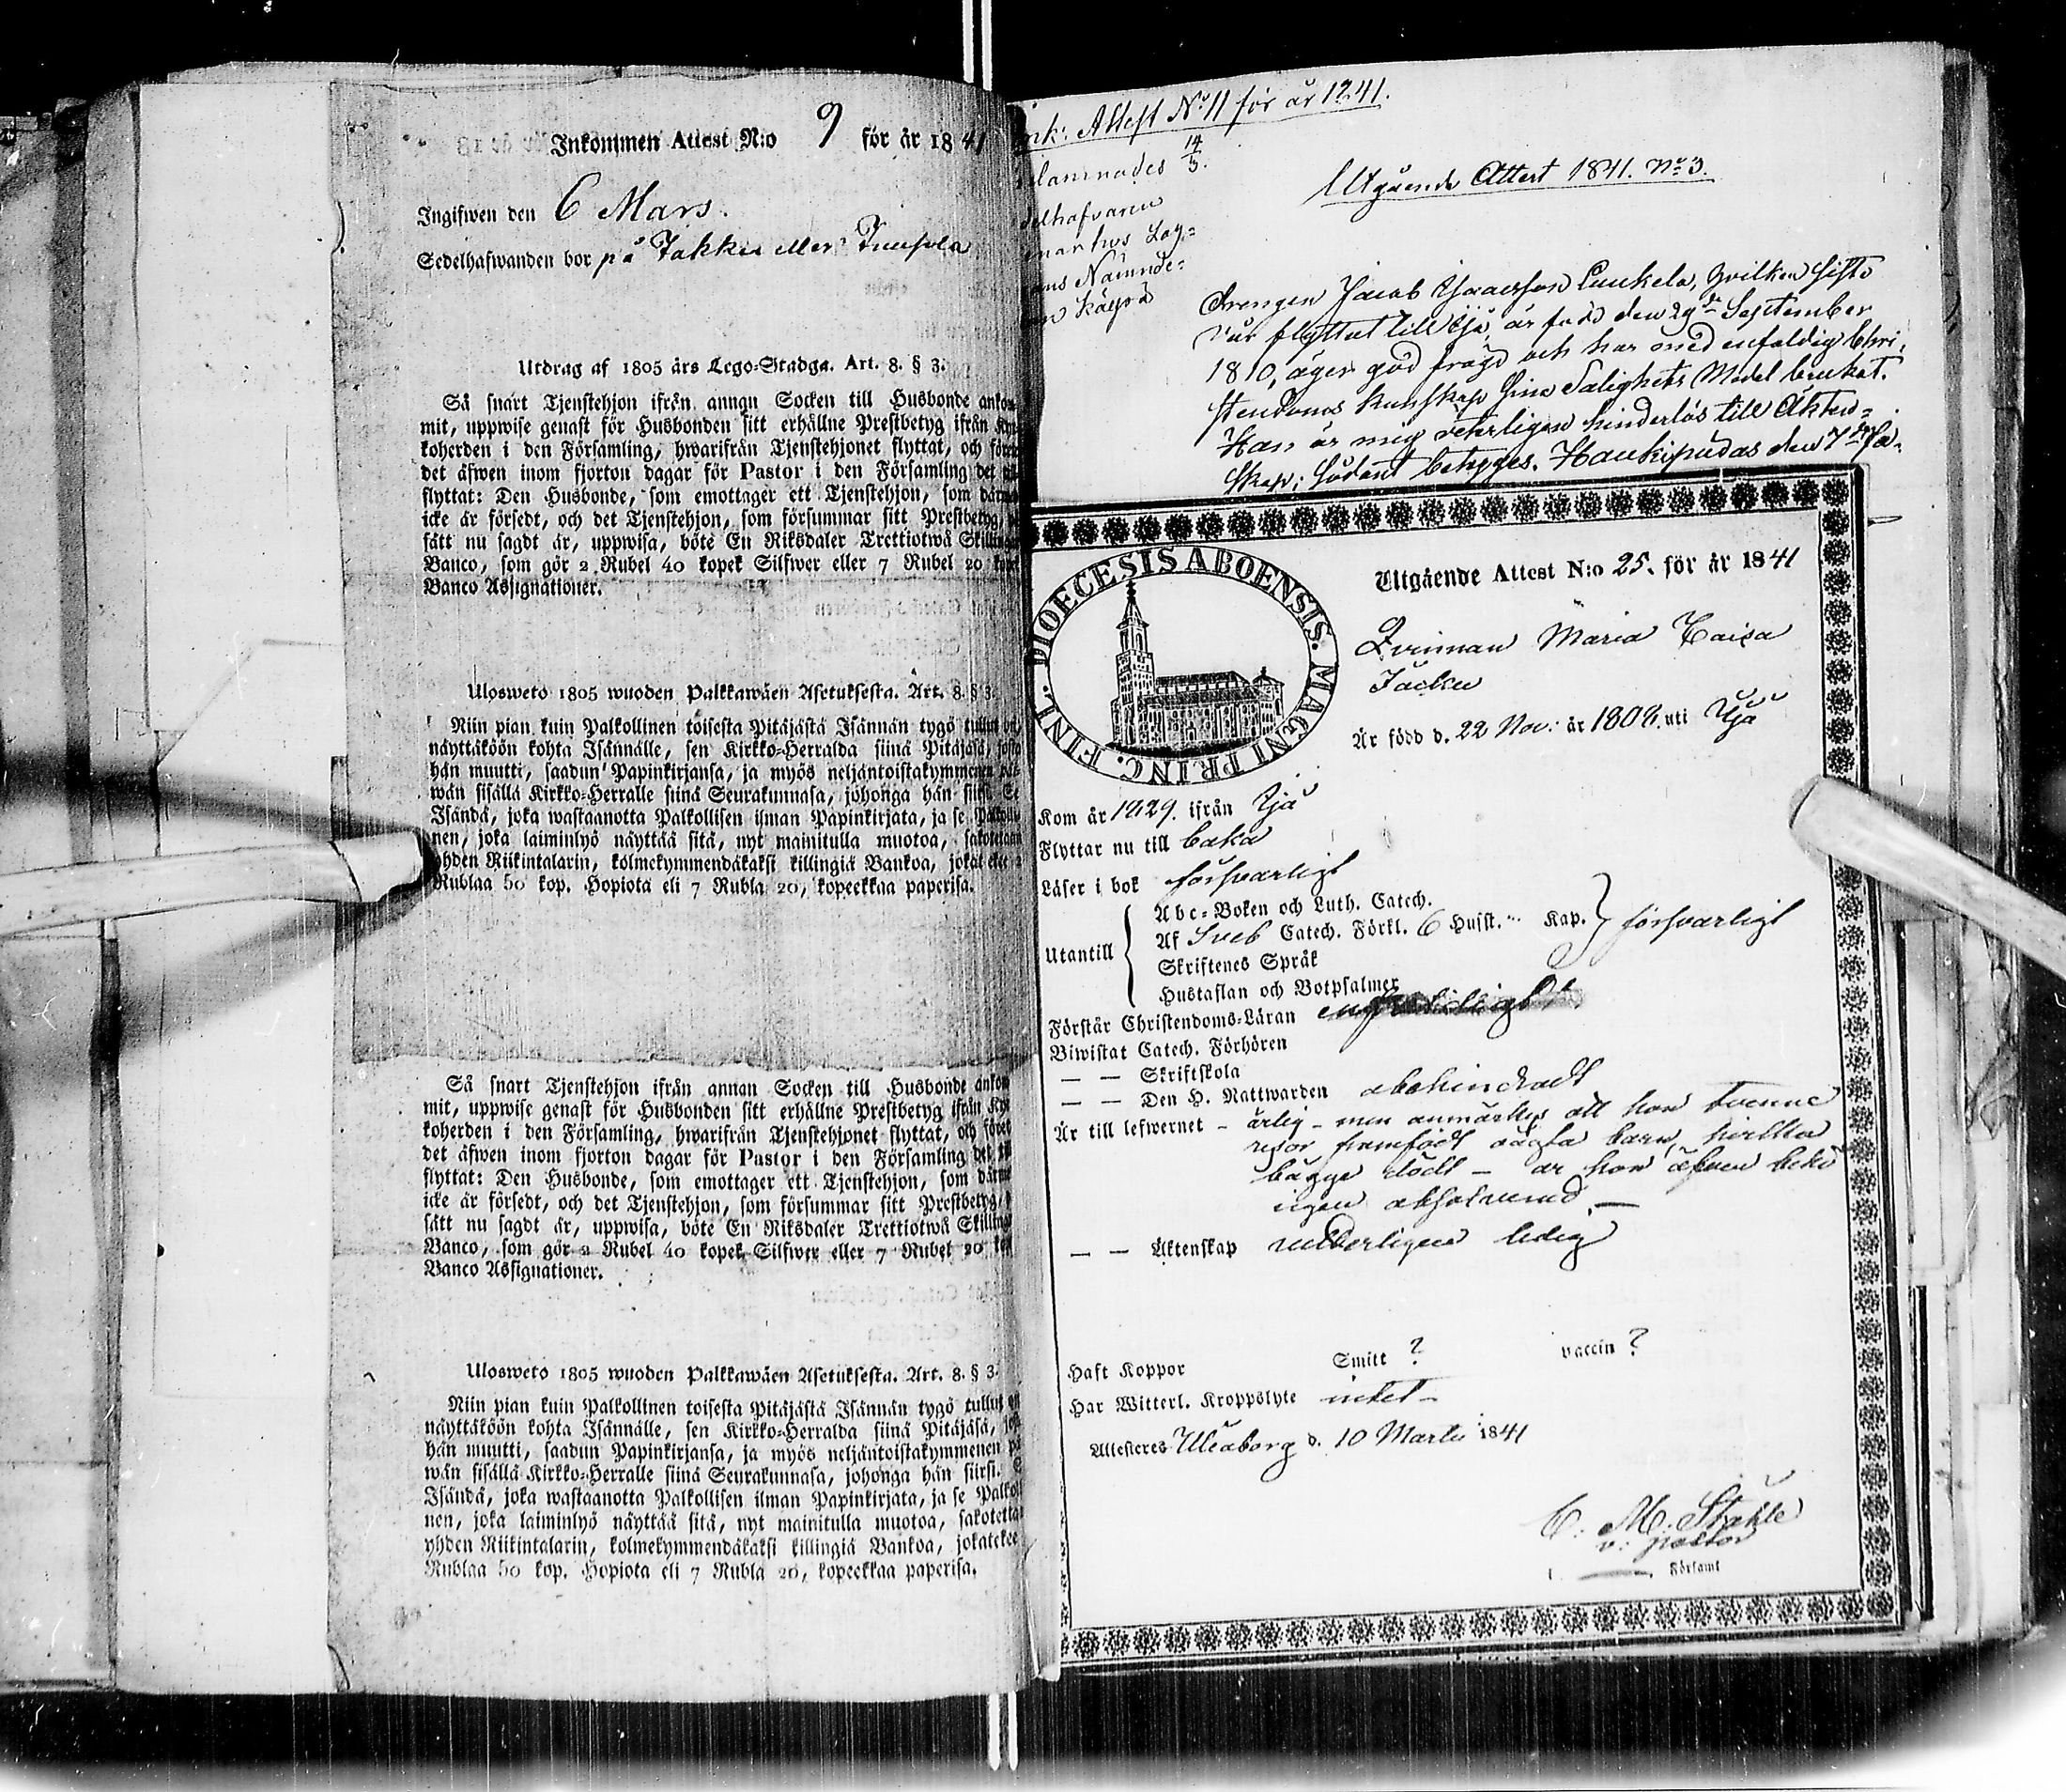 Inkommen Attest N:o 9 för år 1841
Ingifwen den 6 Mars.
Sedelhafwanden bor på Jakku eller
Utdrag af 1805 års Lego-Stadga. Art. 8. § 3.
Så snart Tjenstehjon ifrån annan Socken till Husbonde ankom-
mit, uppwise genast för Husbonden sitt erhållne Prestbetyg ifrån Kyr-
koherden i den Församling, hwarifrån Tjenstehjonet flyttat, och förete
det äfwen inom fjorton dagar för Pastor i den Församling det till
flyttat: Den Husbonde, som emottager ett Tjenstehjon, som därmed
icke är försedt, och det Tjenstehjon, som försummar sitt Prestbetyg, på
sätt nu sagdt är, uppwisa, böte En Riksdaler Trettiotwå Skillingar
Banco, som gör 2 Rubel 40 kopek Silfwer eller 7 Rubel 20 kop.
Banco Assignationer.
Ulosweto 1805 wuoden Palkkawäen Asetuksesta. Art. 8. § 3.
Niin pian kuin Palkollinen toisesta Pitäjästä Isännän tygö tullut on,
näyttäköön kohta Isännälle, sen Kirkko-Herralda siinä Pitäjäsä, josta
hän muutti, saadun Papinkirjansa, ja myös neljäntoistakymmenen päi-
wän sisällä Kirkko-Herralle siinä Seurakunnasa, johonga hän siirsi. Se
Isändä, joka wastaanotta Palkollisen ilman Papinkirjata, ja se Palkolli-
nen, joka laiminlyö näyttää sitä, nyt mainitulla muotoa, sakotetaan
yhden Riikintalarin, kolmekymmendäkaksi killingiä Bankoa, jokatekee 2
Rublaa 50 kop. Hopiota eli 7 Rubla 20, kopeekkaa paperisa.
Så snart Tjenstehjon ifrån annan Socken till Husbonde ankom-
mit, uppwise genast för Husbonden sitt erhållne Prestbetyg ifrån Kyr-
koherden i den Församling, hwarifrån Tjenstehjonet flyttat, och förete
det äfwen inom fjorton dagar för Pastor i den Församling det till
flyttat: Den Husbonde, som emottager ett Tjenstehjon, som därmed
icke är försedt, och det Tjenstehjon, som försummar sitt Prestbetyg, på
sätt nu sagdt är, uppwisa, böte En Riksdaler Trettiotwå Skilling
Banco, som gör 2 Rubel 40 kopek Silfwer eller 7 Rubel 20 kop
Banco Assignationer.
Ulosweto 1805 wuoden Palkkawäen Asetuksesta. Art. 8. § 3.
Niin pian kuin Palkollinen toisesta Pitäjästä Isännän tygö tullut on
näyttäköön kohta Isännälle, sen Kirkko-Herralda siinä Pitäjäsä, josta
hän muutti, saadun Papinkirjansa, ja myös neljäntoistakymmenen päi-
wän sisällä Kirkko-Herralle siinä Seurakunnasa, johonga hän siirsi. Se
Isändä, joka wastaanotta Palkollisen ilman Papinkirjata, ja se Palkolli-
nen, joka laiminlyö näyttää sitä, nyt mainitulla muotoa, sakotetta
yhden Riikintalarin, kolmekymmendäkaksi killingiä Bankoa, jokatekee
Rublaa 50 kop. Hopiota eli 7 Rubla 20, kopeekkaa paperisa.
ink: Attest No 11 för år 1841.
inlamnades 14/3.
delhafvaren
nar hos Lag=
ans Nämnde=
Utgående Attest 1841. No 3.
Drengen Jacob Jsaacsson Luukela, hvilken sisto
vår flyttat till Ijå, är född den 29de September
1810, äger god frägd och har med enfaldig Chri-
stendoms kunskap sina Salighets Medel brukat.
Han är mig veterligen hinderlös till Äkten=
skap; sådant betyges. Haukipudas den 7de Fe-
DIOECESIS ABOENSIS. MAGNI PRINC. FINL.
Utgående Attest N:o 25. för år 1841
Qvinnan Maria Caisa
Jacku
Är född d. 22 Nov: år 1808. uti Ijå
Kom år 1829. ifrån Ijå
Flyttar nu till baka
Läser i bok försvarligt
Utantill
Abc-Boken och Luth. Catech.
Af Sveb Catech. Förkl. 6 Husst. Kap. försvarligt
Skriftenes Språk
Hustaflan och Botpsalmer
Förstår Christendoms-Läran
Biwistat Catech. Förhören
— — Skriftskola
— — Den H. Nattwarden obehindradt
Är till lefwernet - ärlig - men anmärkes att hon tvenne
resor framfödt oägta barn, hvilka
bägge dödt - är hon äfven behö
rigen absolverad. —
— — Äktenskap vitterligen ledig
Haft Koppor Smitt ? vaccin ?
Har Witterl. Kroppslyte intet -
Attesteras Uleåborg d. 10 Martii 1841
C. M. Ståhle
v: pastor
i. —— Församl